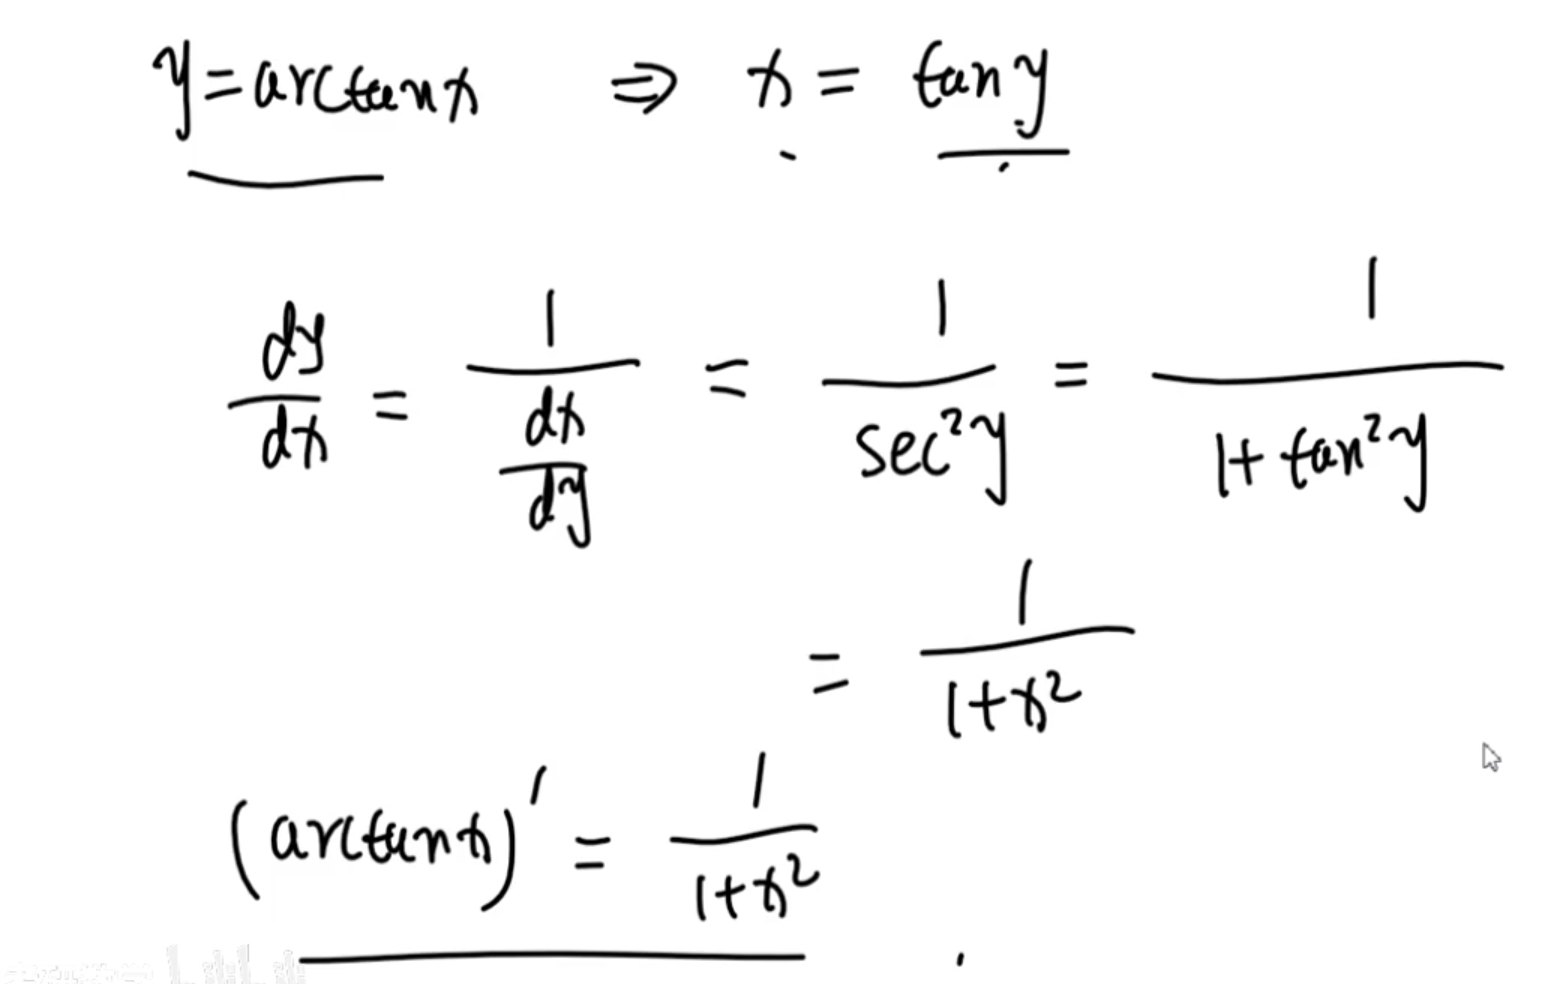 y = arctan x ⇒ x = tan y
dy/dx = 1/(dx/dy) = 1/sec²y = 1/(1 + tan²y)
= 1/(1 + x²)
(arctan x)′ = 1/(1 + x²)